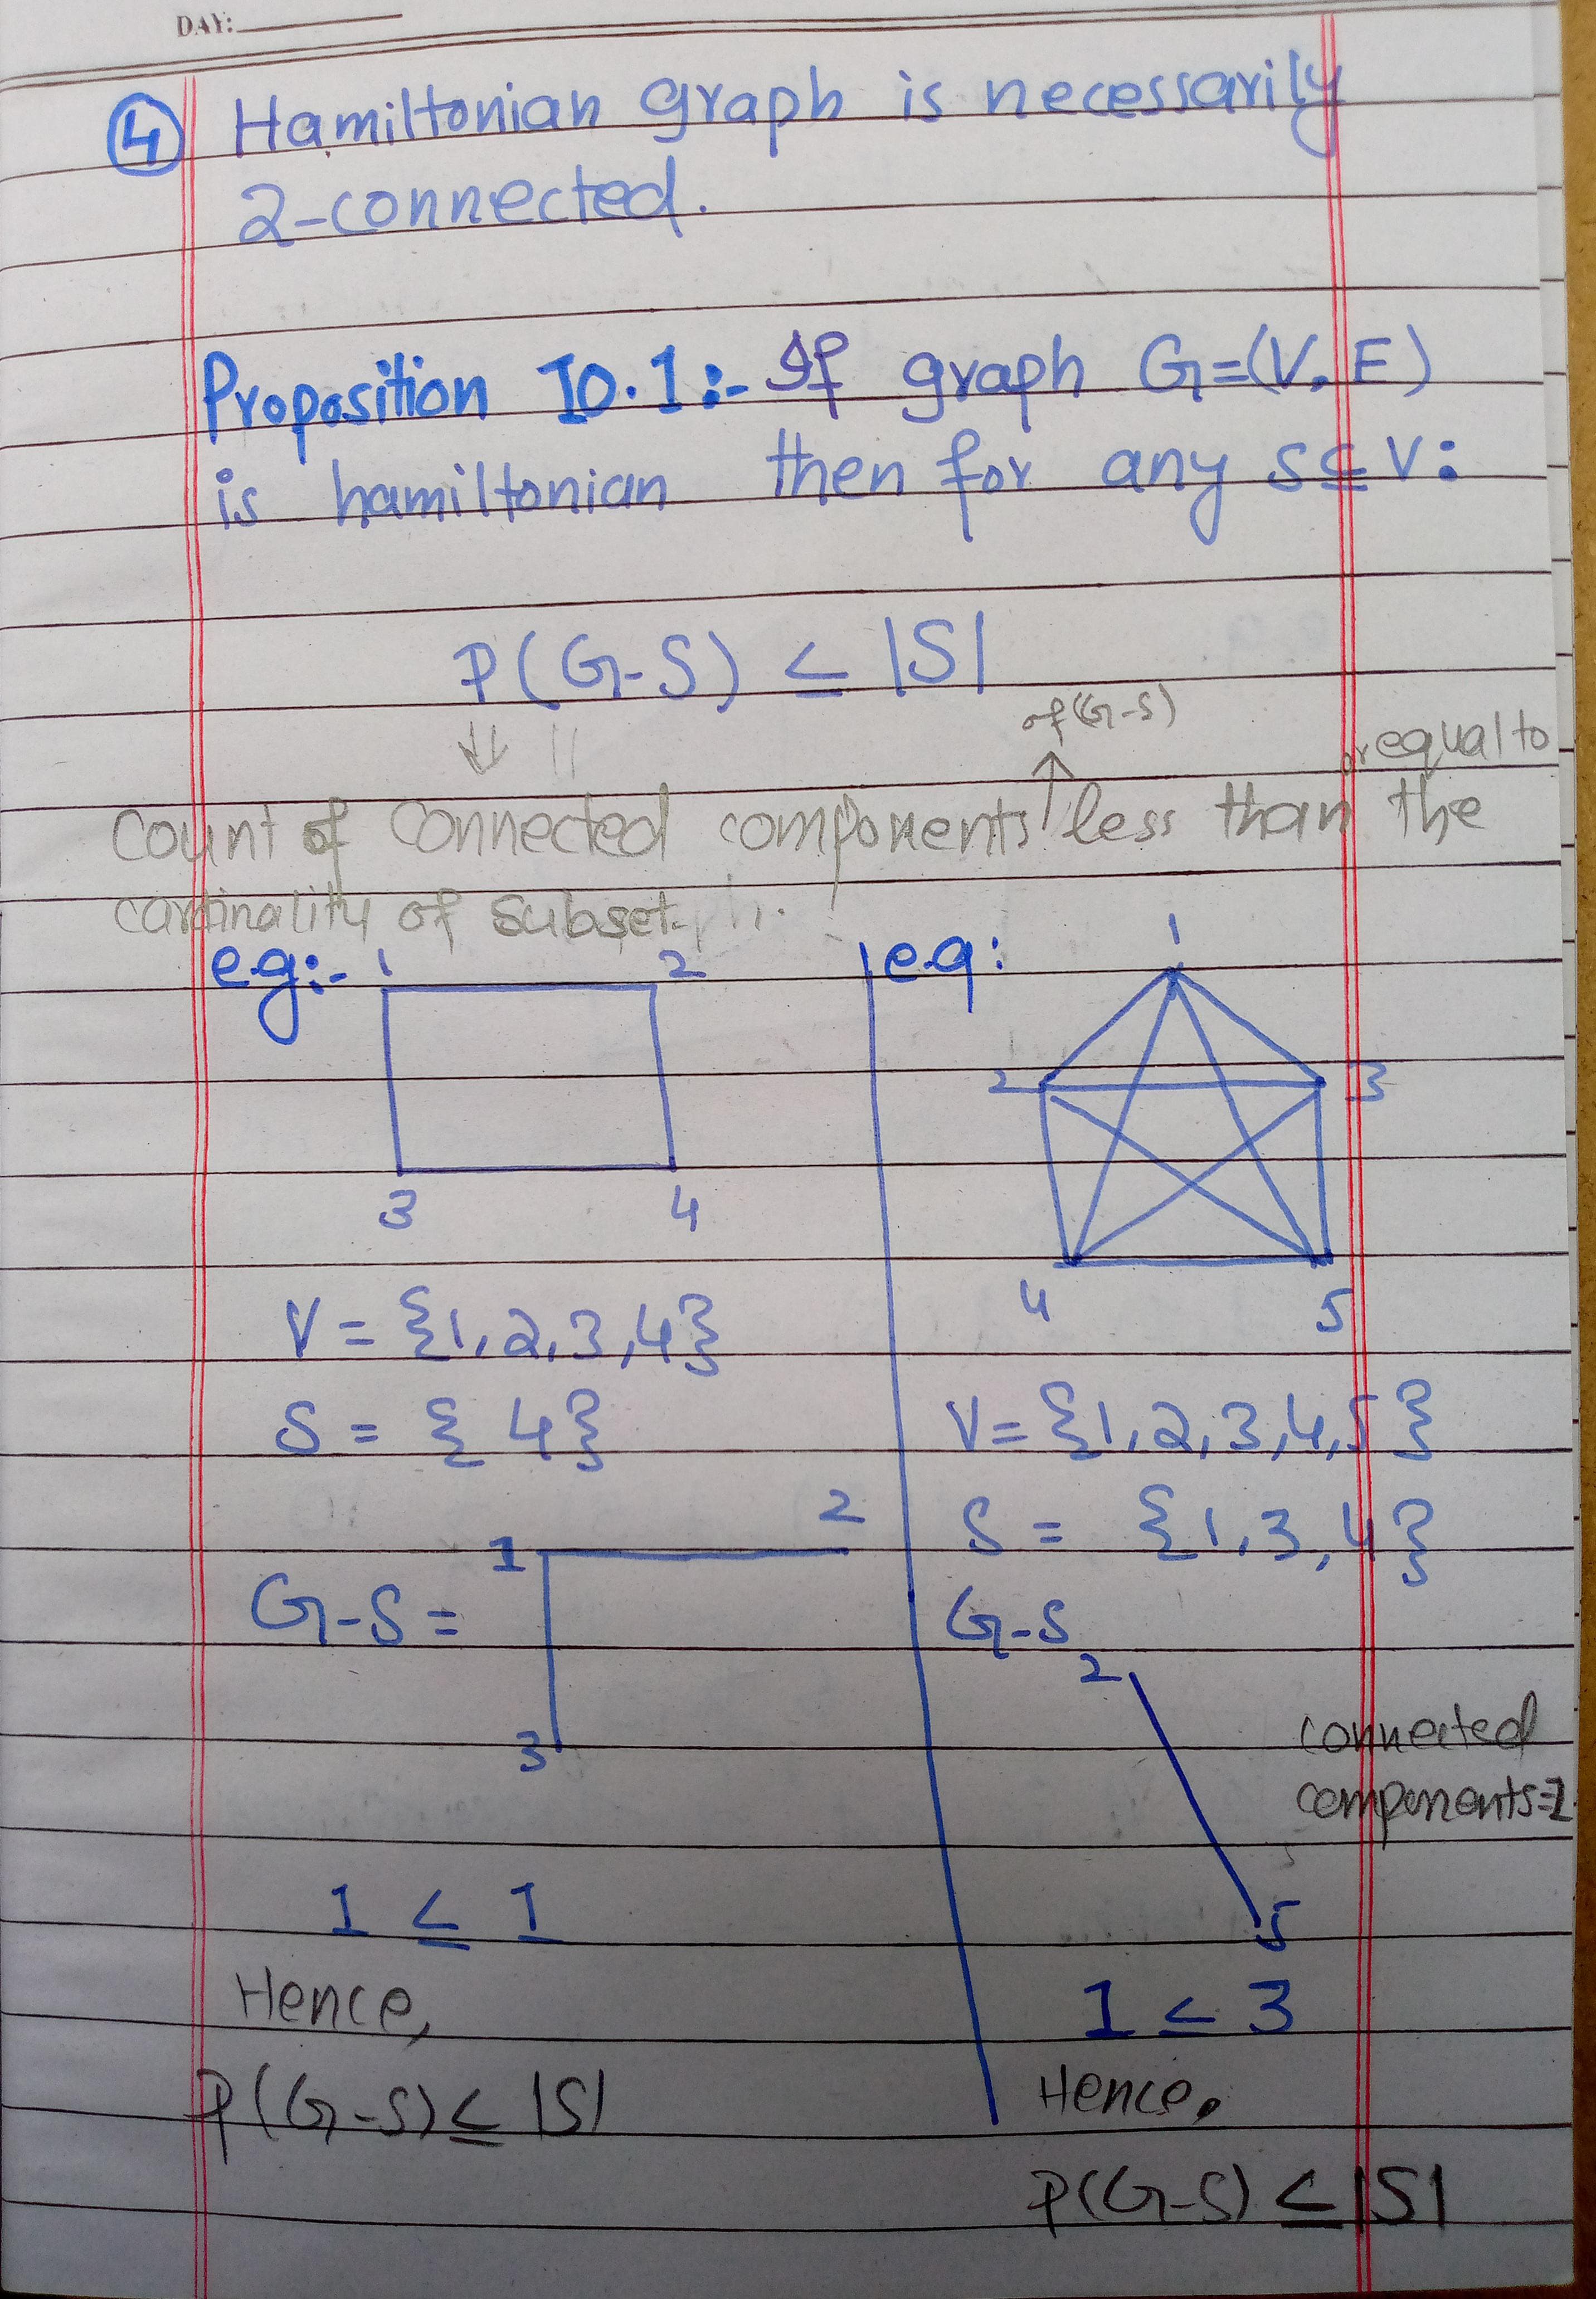 DAY:
4 Hamiltonian graph is necessarily
2-connected.
Proposition 10.1:- If graph G=(V,E)
is hamiltonian then for any S⊆V:
P(G-S) ≤ |S|
of (G-S)
or equal to
Count of connected components ↑ less than the
cardinality of subset.
e.g:- 1 2
3 4
V = {1,2,3,4}
S = { 4}
G-S = 1 2
3
1 ≤ 1
Hence,
P(G-S) ≤ |S|
e.g:
1
2 3
4 5
V= {1,2,3,4,5}
S = {1,3,4}
G-S
2
connected
components=1
5
1 ≤ 3
Hence,
P(G-S) ≤ |S|